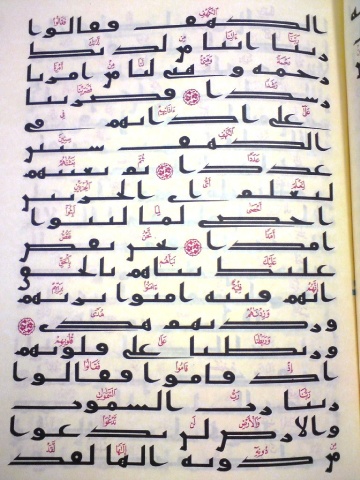 الكهف فقالوا
ربنا اتنا من لدنك
رحمة وهيئ لنا من امرنا
رشدا فضربنا
على اذانهم في
الكهف سنين
عددا ثم بعثنهم
لنعلم اي الحزبين
احصى لما لبثوا
امدا نحن نقص
عليك نباهم بالحق
انهم فتية امنوا بربهم
وزدنهم هدى
وربطنا على قلوبهم
اذ قاموا فقالوا
ربنا رب السموت
والارض لن ندعوا
من دونه الها لقد